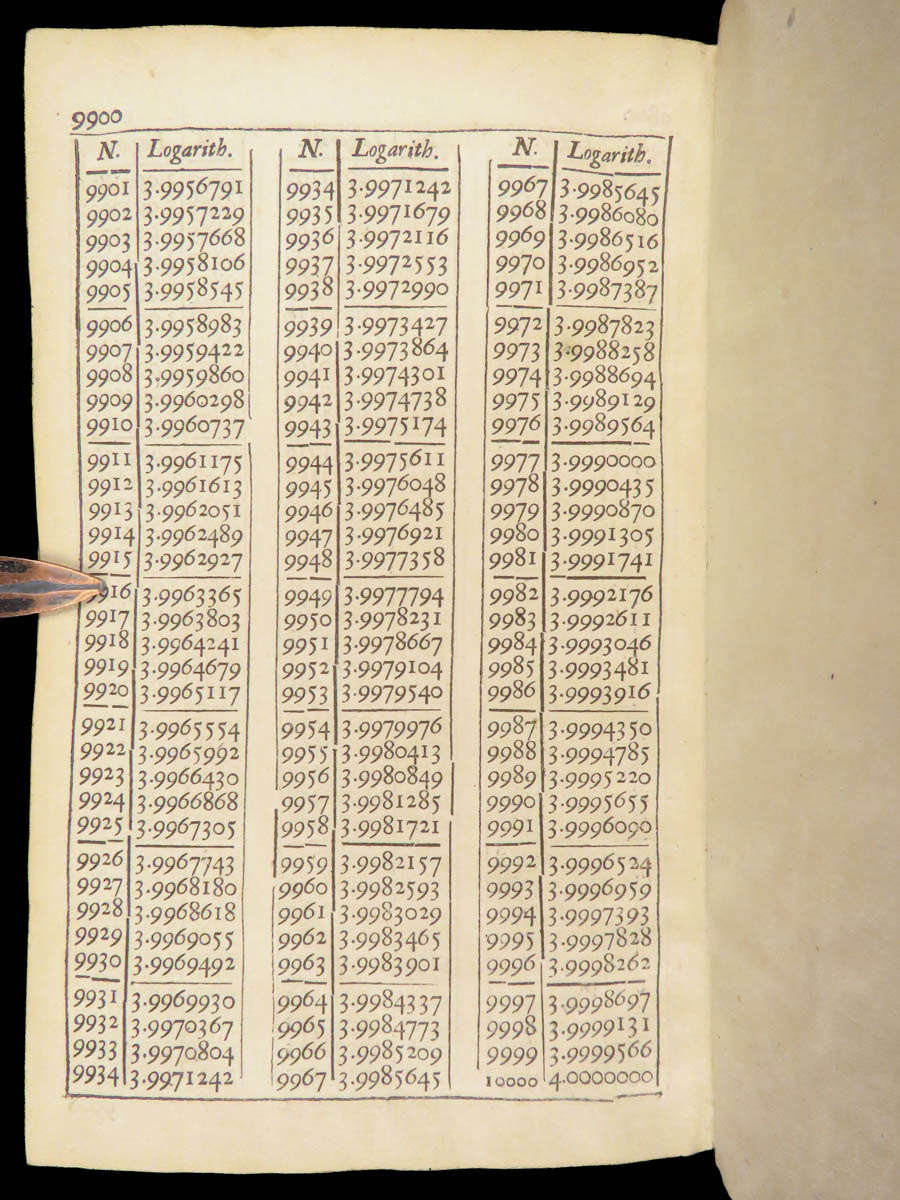 9900
N. Logarith. N. Logarith. N. Logarith.
9901 3.9956791 9934 3.9971242 9967 3.9985645
9902 3.9957229 9935 3.9971679 9968 3.9986080
9903 3.9957668 9936 3.9972116 9969 3.9986516
9904 3.9958106 9937 3.9972553 9970 3.9986952
9905 3.9958545 9938 3.9972990 9971 3.9987387
9906 3.9958983 9939 3.9973427 9972 3.9987823
9907 3.9959422 9940 3.9973864 9973 3.9988258
9908 3.9959860 9941 3.9974301 9974 3.9988694
9909 3.9960298 9942 3.9974738 9975 3.9989129
9910 3.9960737 9943 3.9975174 9976 3.9989564
9911 3.9961175 9944 3.9975611 9977 3.9990000
9912 3.9961613 9945 3.9976048 9978 3.9990435
9913 3.9962051 9946 3.9976485 9979 3.9990870
9914 3.9962489 9947 3.9976921 9980 3.9991305
9915 3.9962927 9948 3.9977358 9981 3.9991741
9916 3.9963365 9949 3.9977794 9982 3.9992176
9917 3.9963803 9950 3.9978231 9983 3.9992611
9918 3.9964241 9951 3.9978667 9984 3.9993046
9919 3.9964679 9952 3.9979104 9985 3.9993481
9920 3.9965117 9953 3.9979540 9986 3.9993916
9921 3.9965554 9954 3.9979976 9987 3.9994350
9922 3.9965992 9955 3.9980413 9988 3.9994785
9923 3.9966430 9956 3.9980849 9989 3.9995220
9924 3.9966868 9957 3.9981285 9990 3.9995655
9925 3.9967305 9958 3.9981721 9991 3.9996090
9926 3.9967743 9959 3.9982157 9992 3.9996524
9927 3.9968180 9960 3.9982593 9993 3.9996959
9928 3.9968618 9961 3.9983029 9994 3.9997393
9929 3.9969055 9962 3.9983465 9995 3.9997828
9930 3.9969492 9963 3.9983901 9996 3.9998262
9931 3.9969930 9964 3.9984337 9997 3.9998697
9932 3.9970367 9965 3.9984773 9998 3.9999131
9933 3.9970804 9966 3.9985209 9999 3.9999566
9934 3.9971242 9967 3.9985645 10000 4.0000000